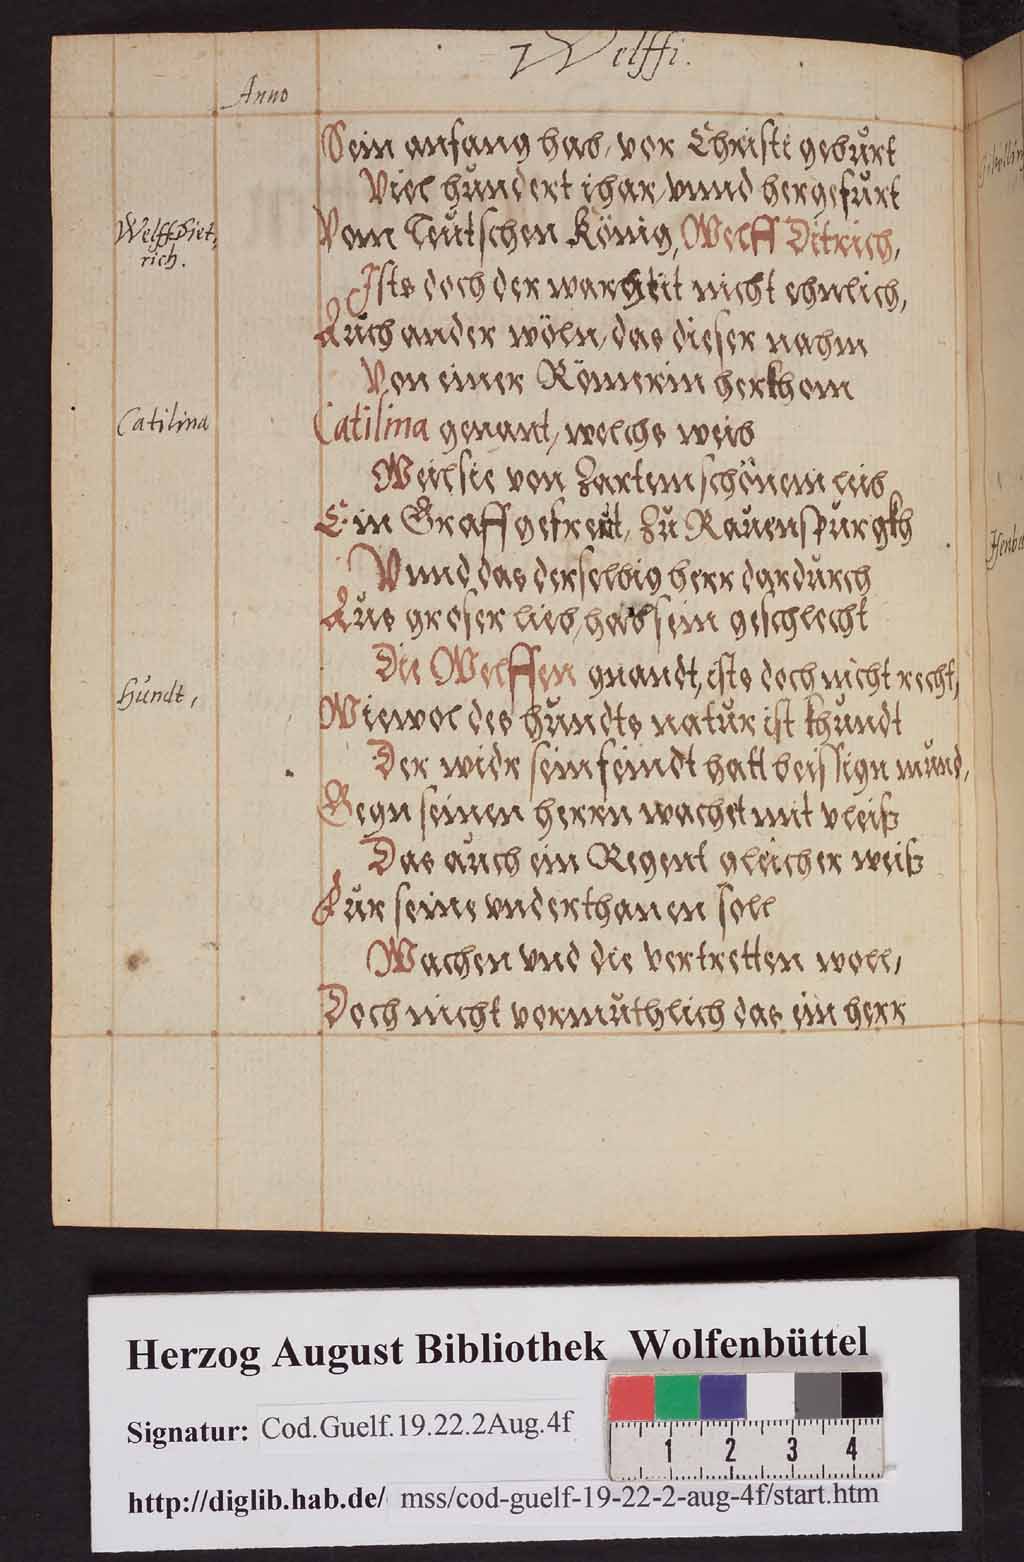 Welffi.
Anno
Sein anfang hab, vor Christi geburt
Viel hundert ihar, vnnd hergefürt
Welff Diet,
rich.
Vom Teutschen König, Welff Ditrich,
Ists doch der warheit nicht ehnlich,
Auch ander wöln, das dieser nahm
Von einer Römerin herkhom
Catilina
Catilina genant, welchs weib
Weil sie von Zartem schönem leib
Ein Graff gefreit, Zu Rauenspurgkh
Vnnd das derselbig herr dardurch
Aus groser lieb, hab sein geschlecht
Die Welffen gnandt, ists doch nicht recht,
Hundt,
Wiewol des hundts natur ist khundt
Der widr sein feindt hatt beissign mund,
Gegn seinen herrn wachet mit vleiß
Das auch ein Regent gleicher weiß
Für seine vnderthanen soll
Wachen vnd die vertretten woll,
Doch nicht vormuthlich das ein herr
Herzog August Bibliothek Wolfenbüttel
Signatur: Cod.Guelf.19.22.2Aug.4f
1 2 3 4
http://diglib.hab.de/ mss/cod-guelf-19-22-2-aug-4f/start.htm